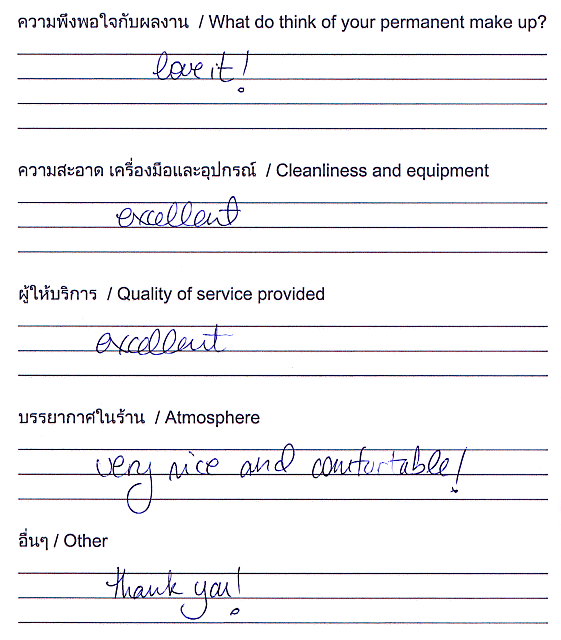 ความพึงพอใจกับผลงาน / What do think of your permanent make up?
love it!
ความสะอาด เครื่องมือและอุปกรณ์ / Cleanliness and equipment
excellent
ผู้ให้บริการ / Quality of service provided
excellent
บรรยากาศในร้าน / Atmosphere
very nice and comfortable!
อื่นๆ / Other
thank you!